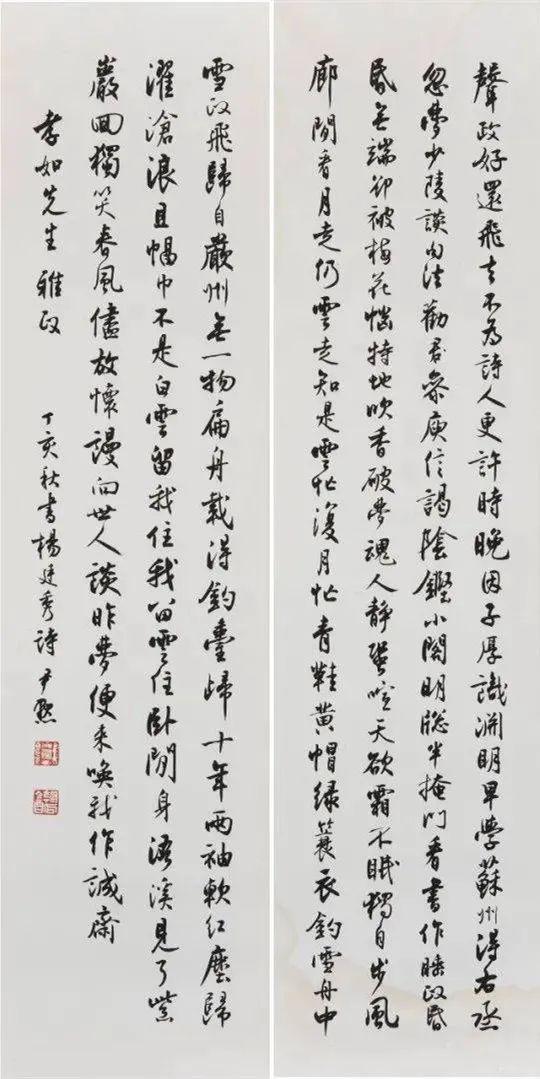 聲政好還飛去不為詩人更許時晚因子厚識淵明早學蘇州得右丞
忽夢少陵談句法勸君參庾信謁陰鏗小閣明牕半掩門看書作睡政昏
昏無端卻被梅花惱特地吹香破夢魂人靜蛩喧天欲霜不眠獨自步風
廊閒看月走仍雲走知是雲忙復月忙青鞋黃帽綠蓑衣釣雪舟中
雪政飛歸自嚴州無一物扁舟載得釣臺歸十年兩袖軟紅塵歸
濯滄浪且幅巾不是白雲留我住我留雲住臥閒身浯溪見了紫
巖回獨笑春風儘放懷謾向世人談昨夢便來喚我作誠齋
孝如先生雅政
丁亥秋書楊廷秀詩 尹默